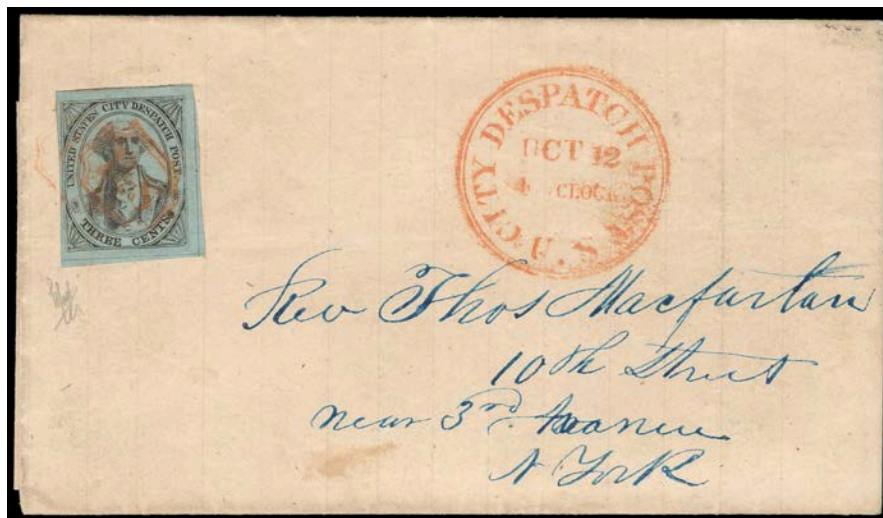 UNITED STATES CITY DESPATCH POST.
THREE CENTS
U.S. CITY DESPATCH POST
OCT 12
4 O'CLOCK
Rev Thos Macfarlan
10th Street
near 3rd Avanue
N York